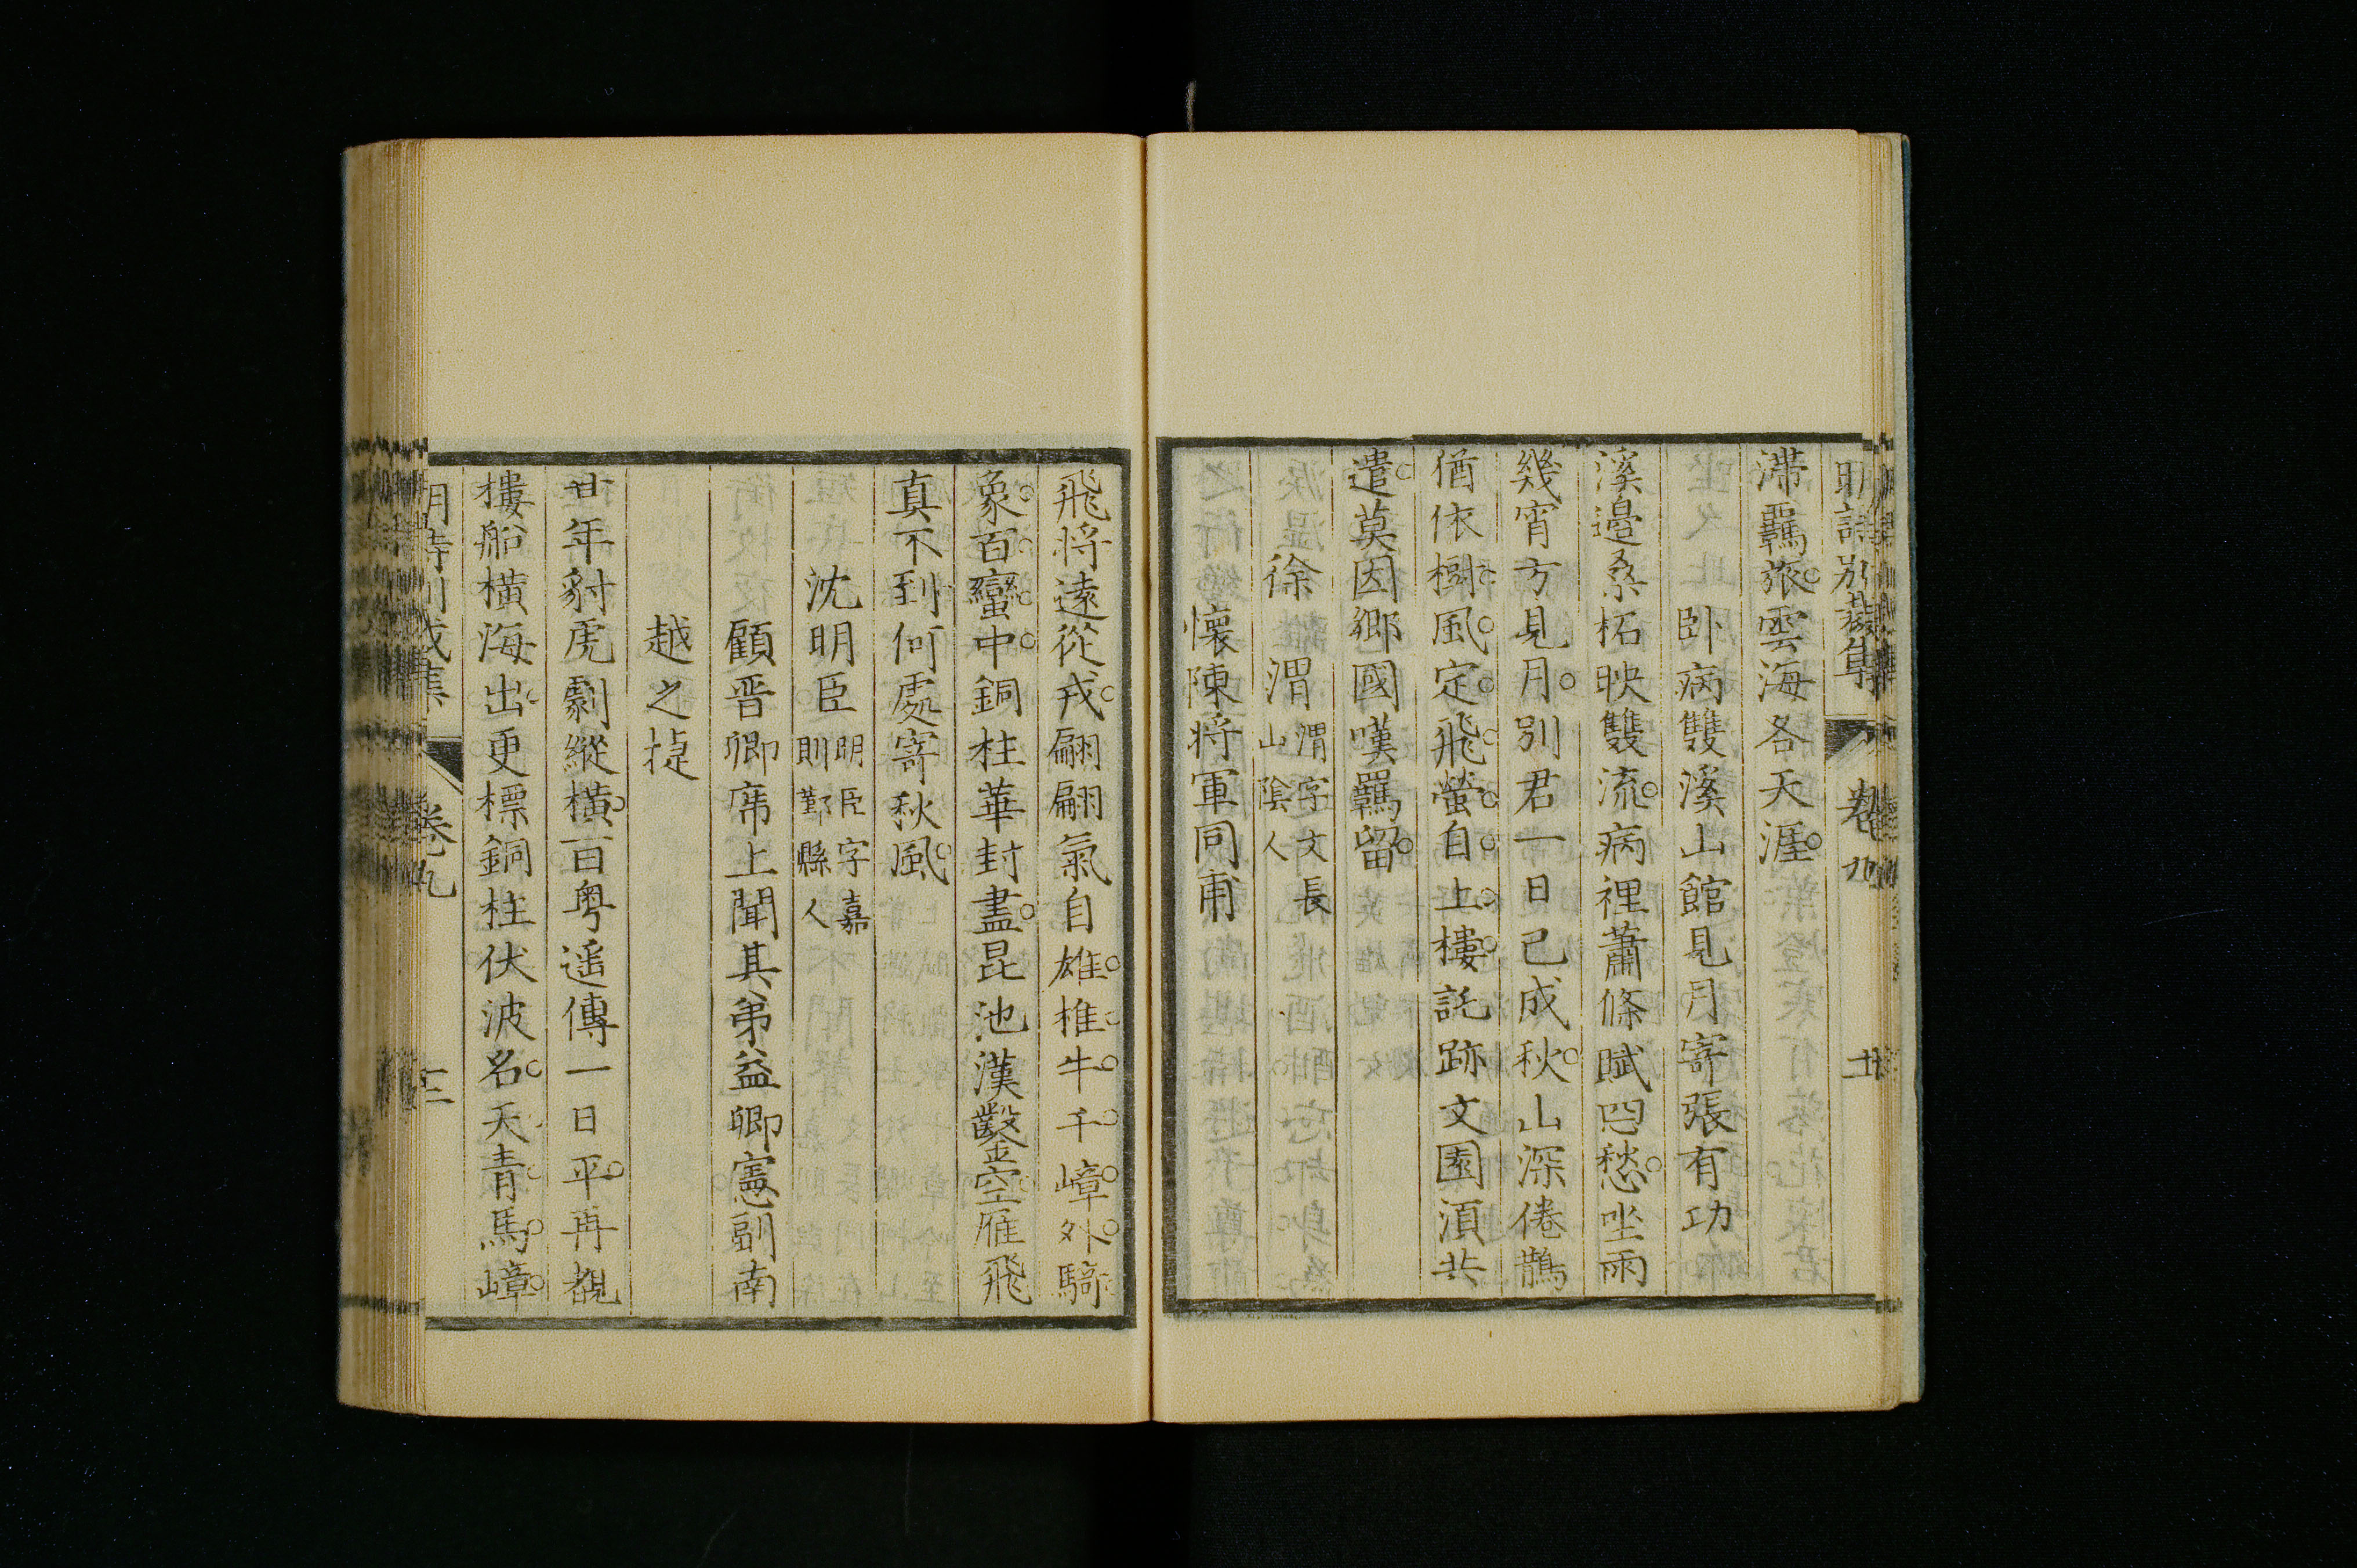 明詩別裁集 卷九 十
滯羈旅雲海各天涯
卧病雙溪山館見月寄張有功
溪邉桑柘映雙流病裡蕭條賦四愁坐雨
幾宵方見月別君一日已成秋山深倦鵲
猶依樹風定飛螢自上樓託跡文園湏共
遣莫因鄉國嘆羈留
徐渭渭字文長山陰人
懷陳將軍同甫
飛將遠從戎翩翩氣自雄椎牛千嶂外騎
象百蠻中銅柱華封盡昆池漢鑿空雁飛
真不到何處寄秋風
沈明臣明臣字嘉則鄞縣人
顧晋卿席上聞其弟益卿憲副南
越之捷
廿年豺虎劇縱橫百粤遥傳一日平再覩
樓船橫海出更標銅柱伏波名天青馬嶂
明詩別裁集 卷九